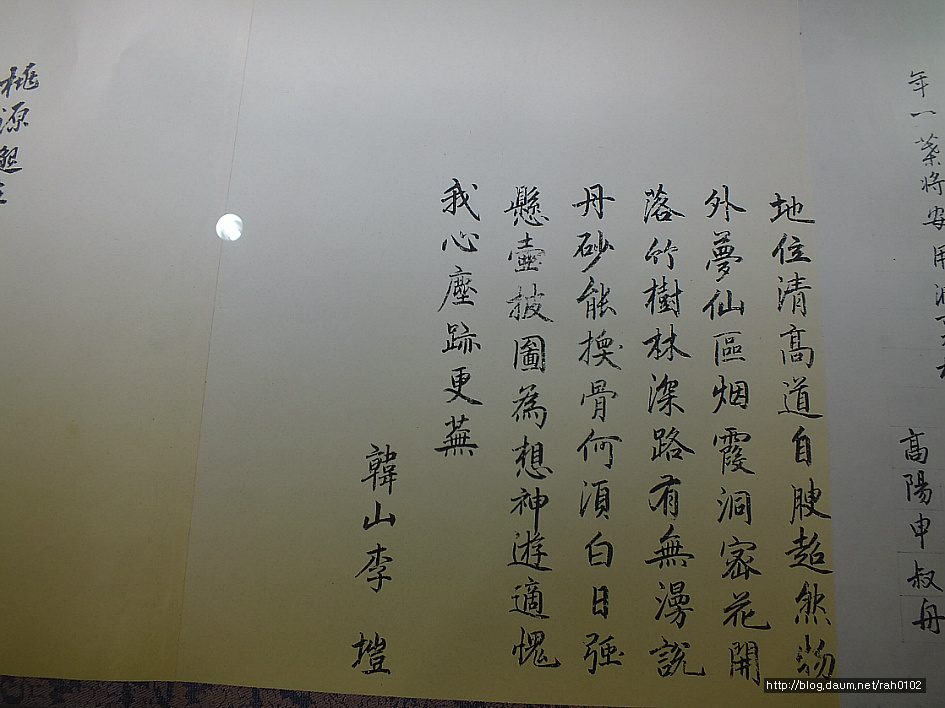 年一葉将安用
高陽申叔舟
地位清高道自腴超然物
外夢仙區烟霞洞密花開
落竹樹林深路有無漫說
丹砂能換骨何須白日強
懸壺披圖為想神遊適愧
我心塵跡更蕪
韓山李 塏
桃源
http://blog.daum.net/rah0102